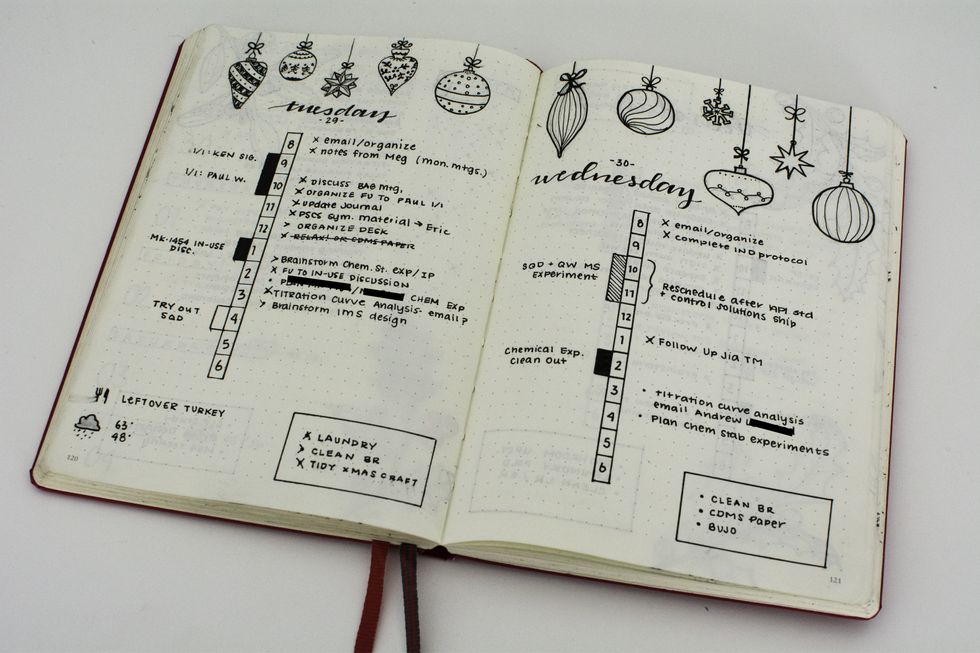 tuesday
-29-
8
9
10
11
12
1
2
3
4
5
6
1/1: KEN SIG.
1/1: PAUL W.
MK-1454 IN-USE
DISC.
TRY OUT
SQD
x email/organize
x notes from Meg (mon. mtgs.)
x DISCUSS BAG Mtg.
x ORGANIZE FU TO PAUL 1/1
x update Journal
x PSCS sym. material → Eric
> ORGANIZE DESK
x RELAX! OR CDMS PAPER
> Brainstorm Chem. St. exp/IP
x FU TO IN-USE DISCUSSION
CHEM EXP
x TITRATION Curve Analysis- email?
> Brainstorm IMS design
LEFTOVER TURKEY
63°
48°
x LAUNDRY
> CLEAN BR
x TIDY XMAS CRAFT
120
-30-
wednesday
8
9
10
11
12
1
2
3
4
5
6
SQD + QW MS
Experiment
Chemical Exp.
Clean Out
x email/organize
x complete IND protocol
Reschedule after IAPI std
+ control solutions ship
x Follow Up Jia TM
• Titration curve analysis
email Andrew
• Plan chem stab experiments
• CLEAN BR
• CDMS Paper
• BUJO
121